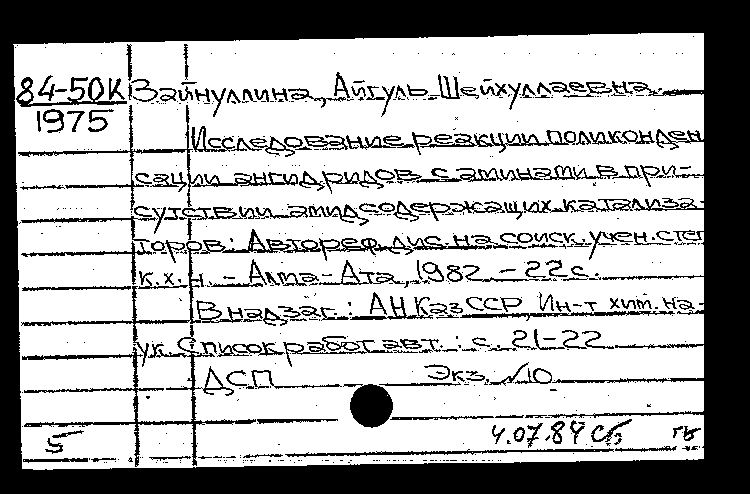 84-50К Зайнуллина, Айгуль Шейхуллаевна.
1975
Исследование реакции поликонден
сации ангидридов с аминами в при-
сутствии амидсодержащих катализа-
торов: Автореф. дис. на соиск. учен. степ
к.х.н. - Алма-Ата, 1982. - 22 с.
В надзаг.: АН КазССР, Ин-т хим. на-
ук. Список работ авт.: с. 21-22
ДСП Экз. №10
5 4.07.84 СБ